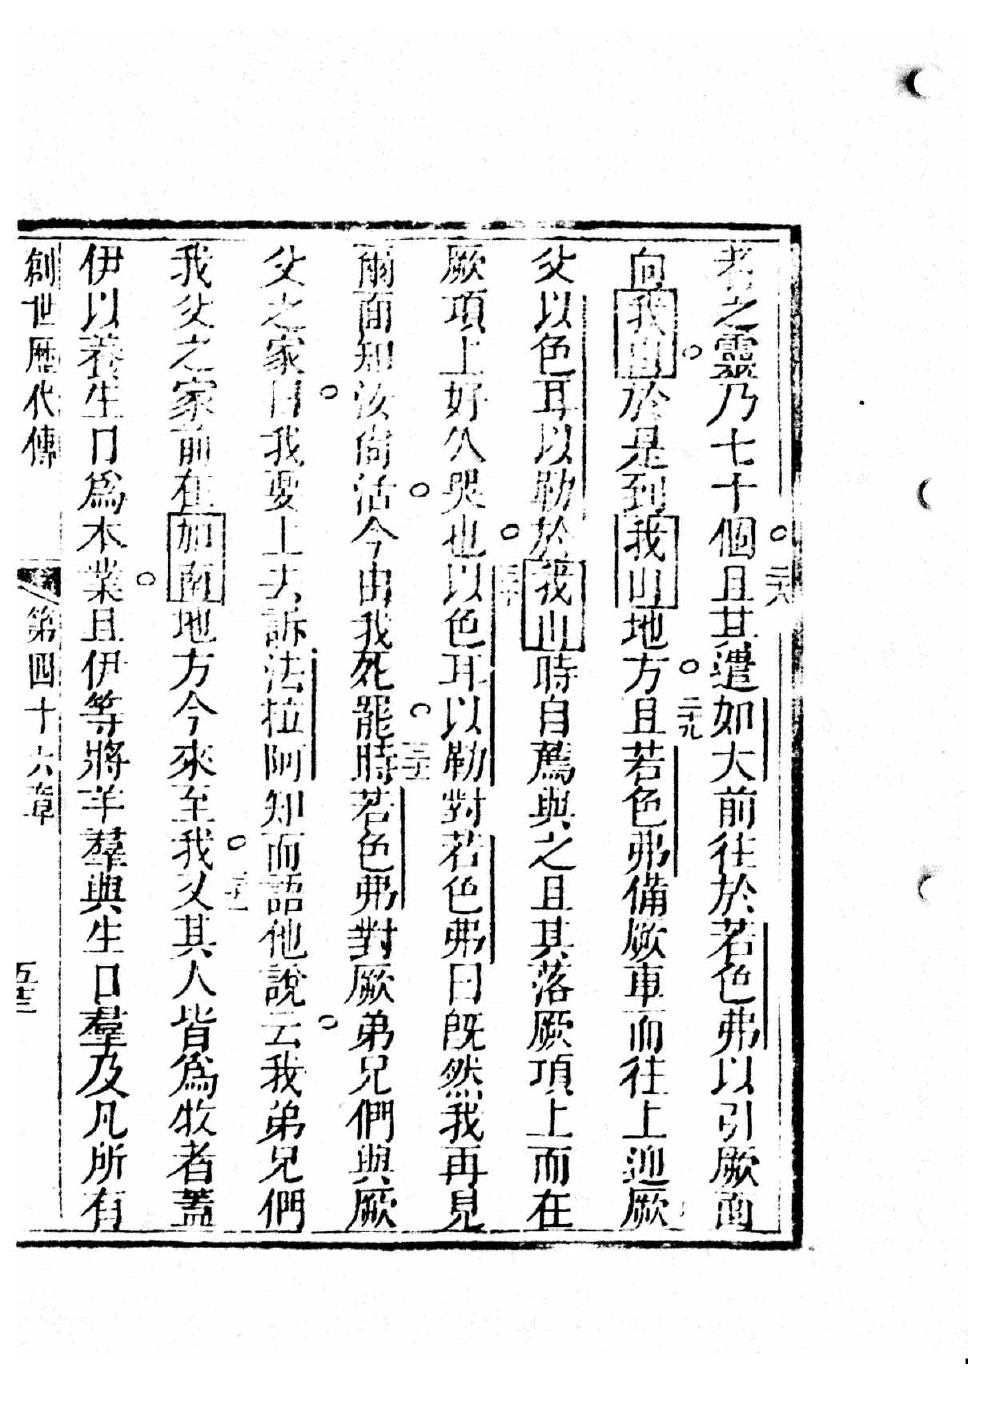 者之靈乃七十個○二八且其遣如大前往於若色弗以引厥面
向我山○於是到我山地方○二九且若色弗備厥車而往上迎厥
父以色耳以勒於我山時自薦與之且其落厥項上而在
厥項上好久哭也○三十以色耳以勒對若色弗曰既然我再見
爾面知汝尚活○今由我死罷○三一時若色弗對厥弟兄們與厥
父之家曰○我要上去訴法拉阿知而語他說云○我弟兄們
我父之家前在加南地方今來至我○三二又其人皆為牧者蓋
伊以養生口為本業○且伊等將羊羣與生口羣及凡所有
創世歷代傳 第四十六章